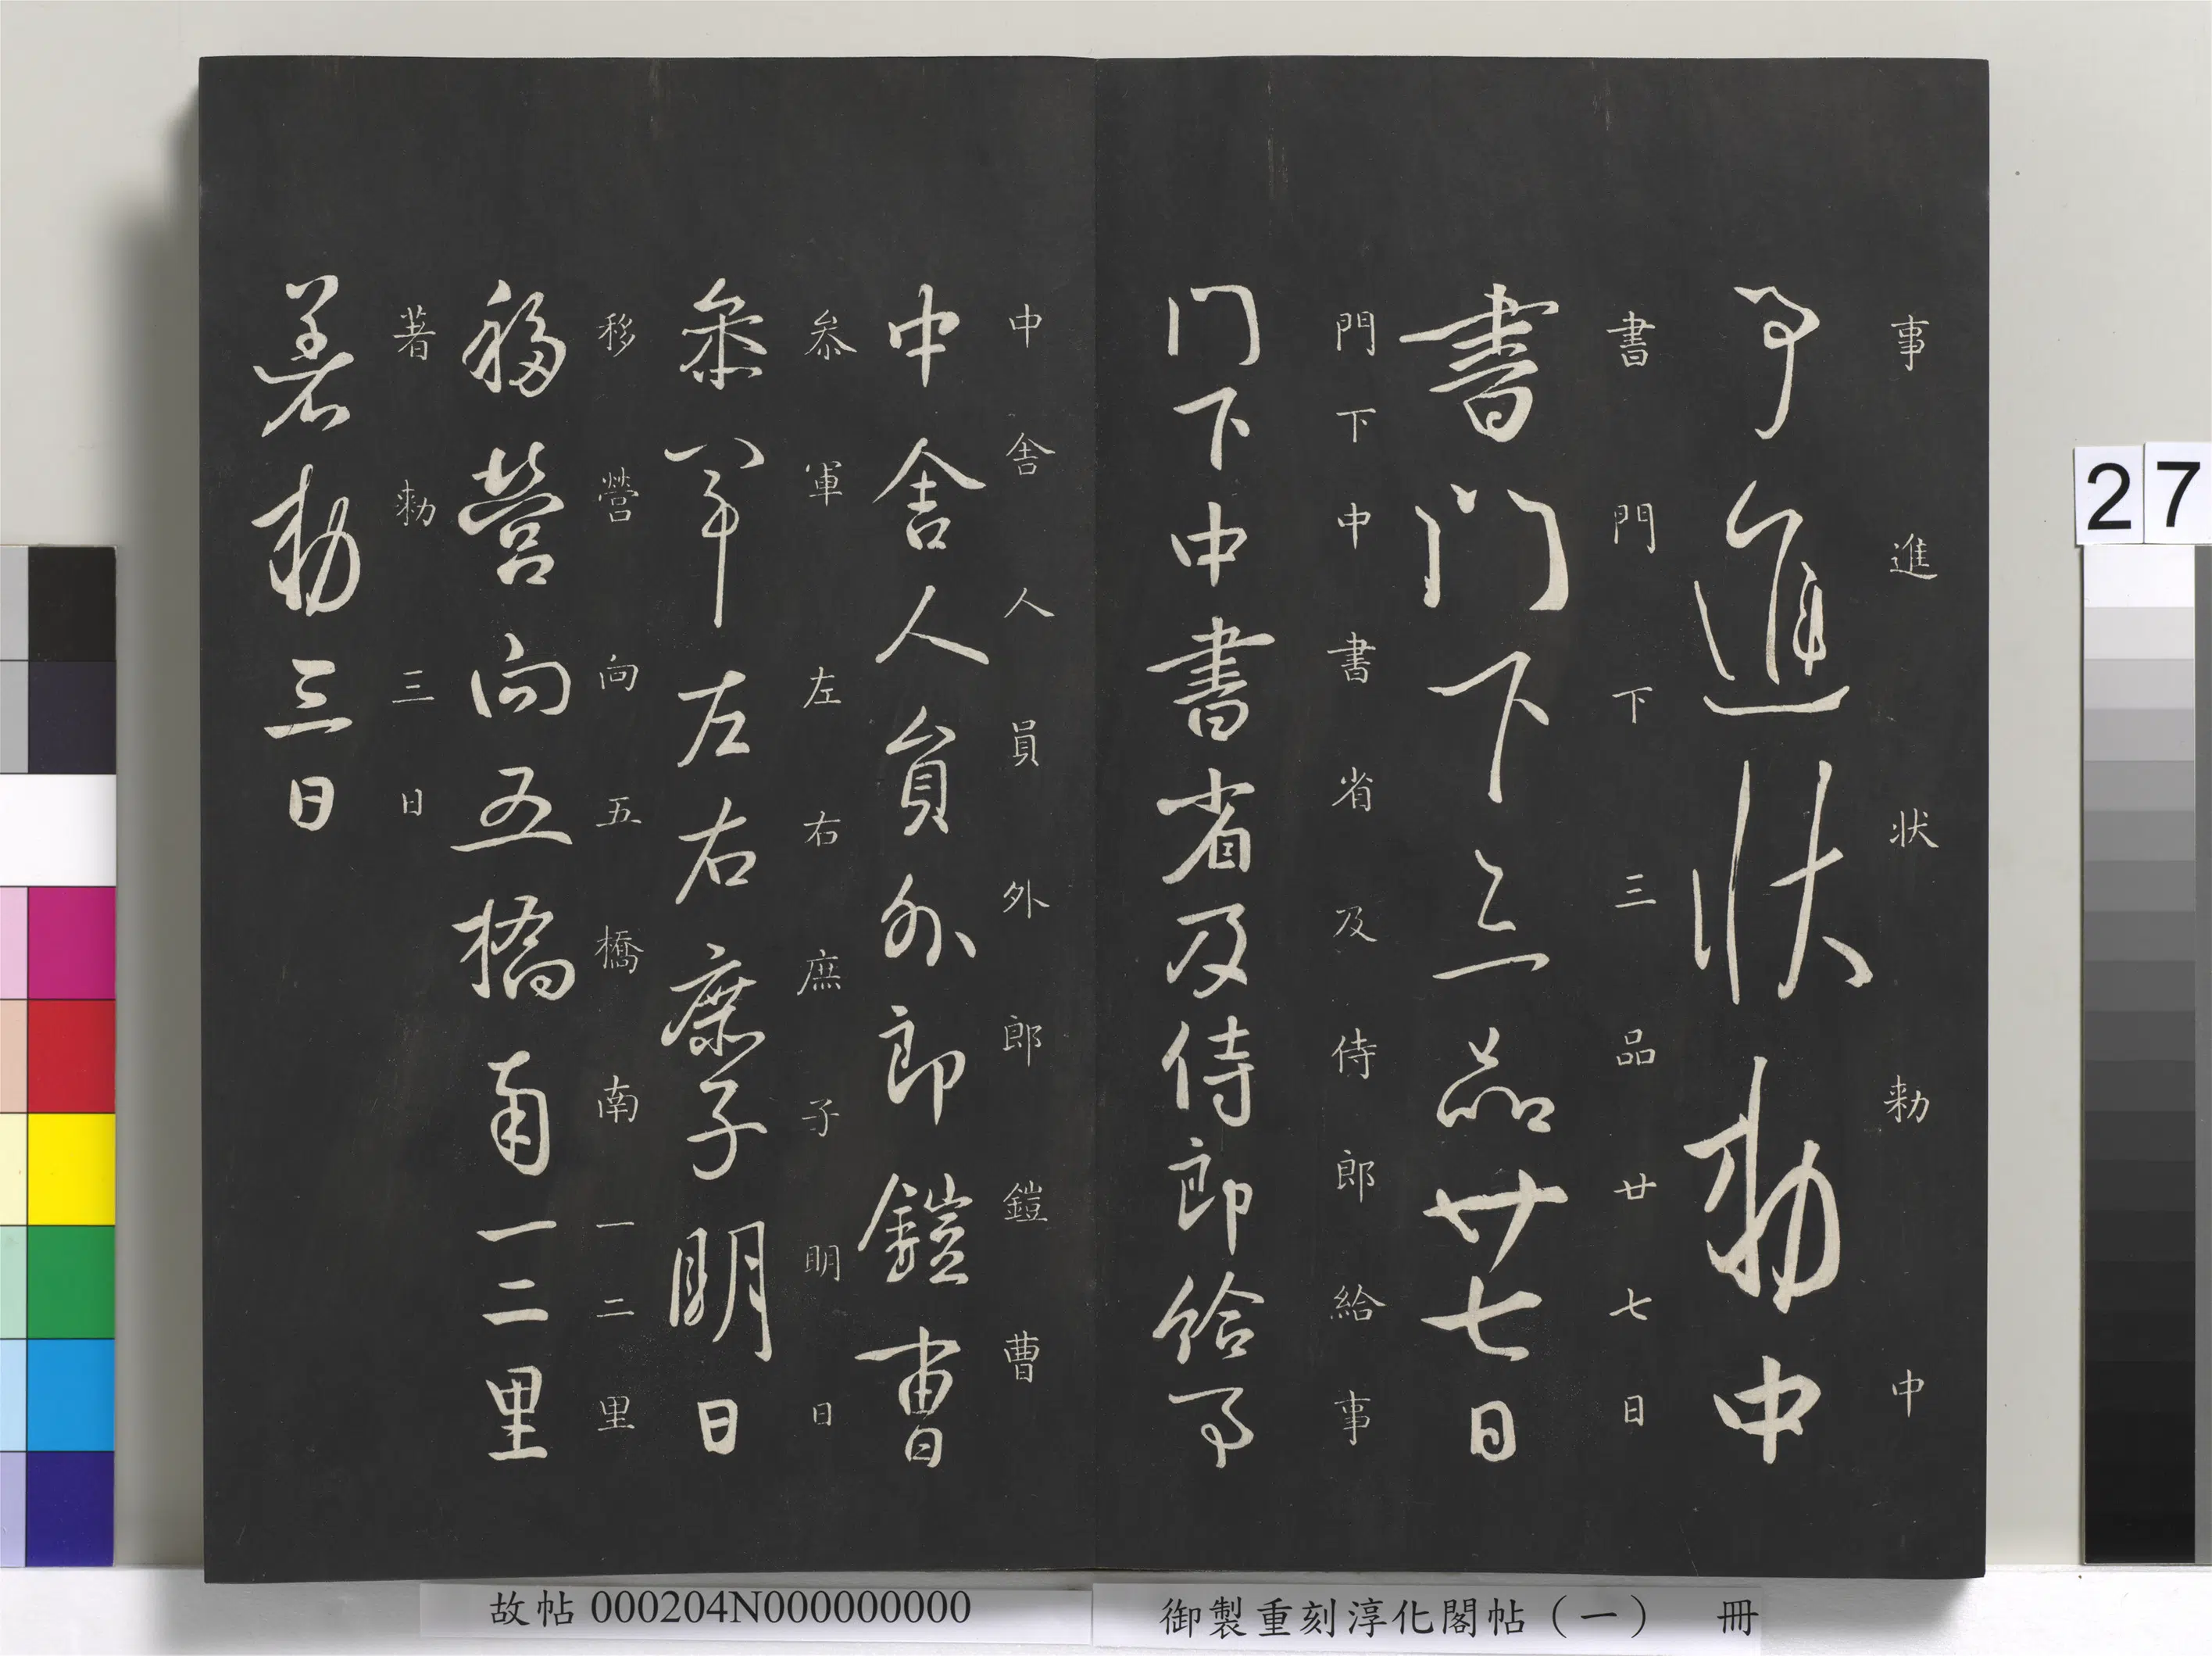 事進状勑中
事進状勑中
書門下三品廿七日
書門下三品廿七日
門下中書省及侍郎給事
門下中書省及侍郎給事
中舍人員外郎鎧曹
中舍人員外郎鎧曹
叅軍左右庶子明日
叅軍左右庶子明日
移營向五橋南一二里
移營向五橋南一二里
著勑三日
著勑三日
27
御製重刻淳化閣帖（一） 冊
故帖 000204N000000000